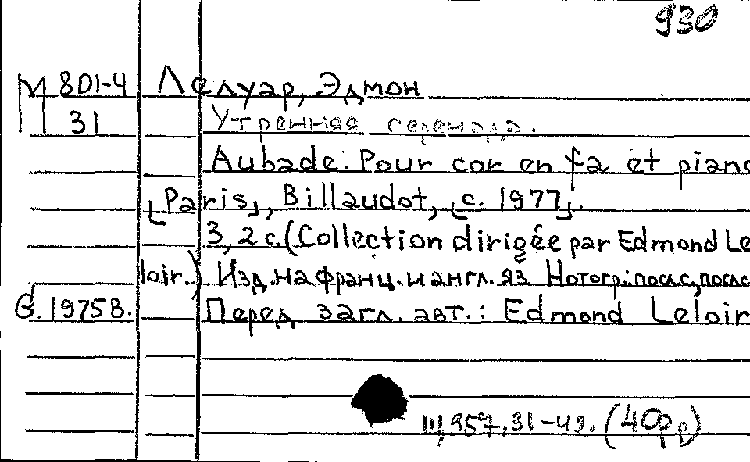 930
М 801-4 Лелуар, Эдмон
31 Утренняя серенада.
Aubade: Pour cor en fa et piano
[Paris], Billaudot, [c. 1977].
3, 2 с. (Collection dirigée par Edmond Le
loir.) Изд. на франц. и англ. яз
G. 19758. Перед загл. авт.: Edmond Leloir
957.31-49. (40р.)